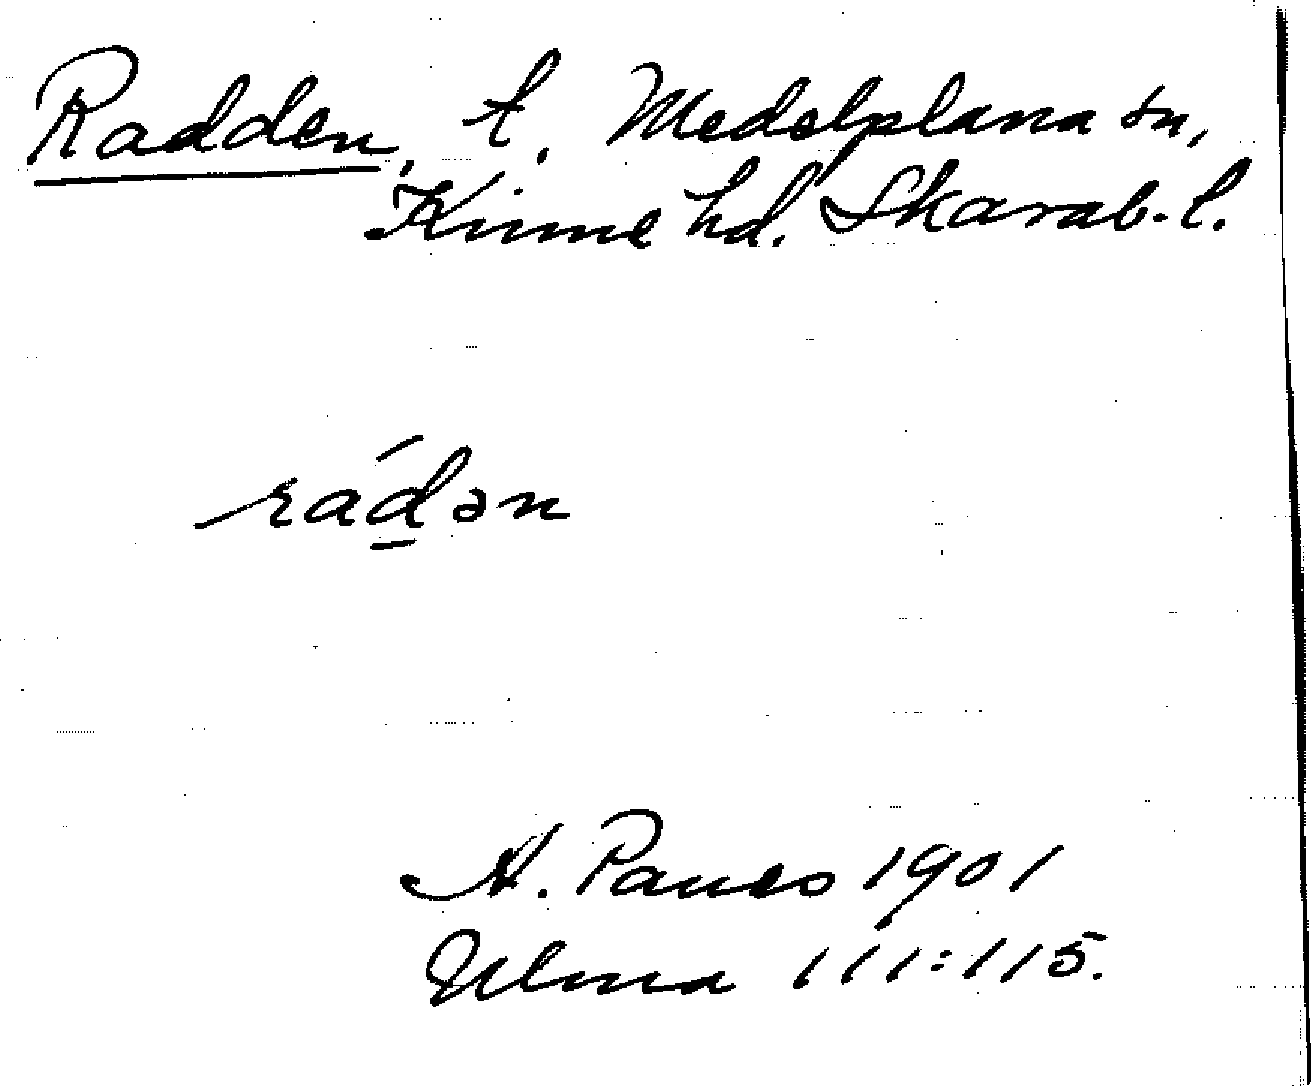 Radden, t. Medelplana sn,
Kinne hd. Skarab. l.
rád̲ən
A. Paues 1901
Ulma 111:115.